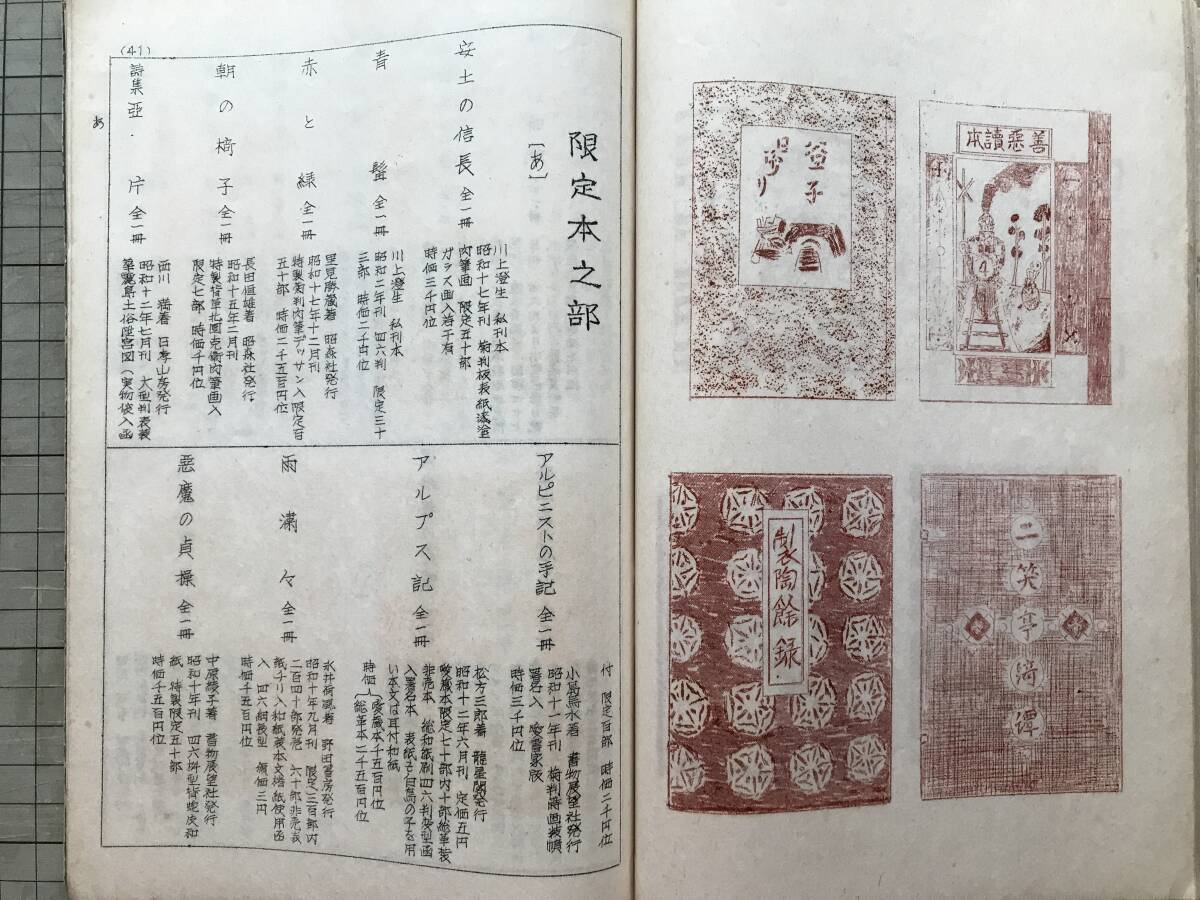 善惡讀本
益子
日がへり
二笑亭綺譚
製陶餘録
限定本之部
〔あ〕
安土の信長 全一冊
川上澄生 私刊本
昭和十七年刊 菊判板表紙漆塗
肉筆画 限定五十部
ガラス画入若干有
時価三千円位
青髯 全一冊
川上澄生 私刊本
昭和二年刊 四六判 限定三十
三部 時価二千円位
赤と緑 全一冊
里見勝蔵著 昭森社発行
昭和十七年十二月刊
特製菊判肉筆デッサン入限定百
五十部 時価二千五百円位
朝の椅子 全一冊
長田恒雄著 昭森社発行
昭和十五年二月刊
特製背革北園克衛肉筆画入
限定七部 時価千円位
詩集 亞片 全一冊
西川満著 日孝山房発行
昭和十二年七月刊 大型判表装
臺灣島土俗陞官図(実物使入函
付 限定百部 時価二千円位
アルピニストの手記 全一冊
小島烏水著 書物展望社発行
昭和十一年刊 菊判蒔画装幀
署名入 愛書家版
時価三千円位
アルプス記 全一冊
松方三郎著 龍星閣発行
昭和十二年六月刊 定価五円
愛蔵本限定七十部内十部総革装
非売本 総和紙刷四六判変型函
入署名本 表紙き白鳥の子を用
い本文は耳付和紙
時価 愛蔵本千五百円位
総革本二千五百円位
雨瀟々 全一冊
永井荷風著 野田書房発行
昭和十年九月刊 限定三百部内
二百四十部発売 六十部非売表
紙チリ入和紙装本文楮紙使用函
入 四六納長型 頒価三円
時価千五百円位
悪魔の貞操 全一冊
中原綾子著 書物展望社発行
昭和十年刊 四六桝型背蛇皮和
紙 特製限定五十部
時価千五百円位
(41)
あ